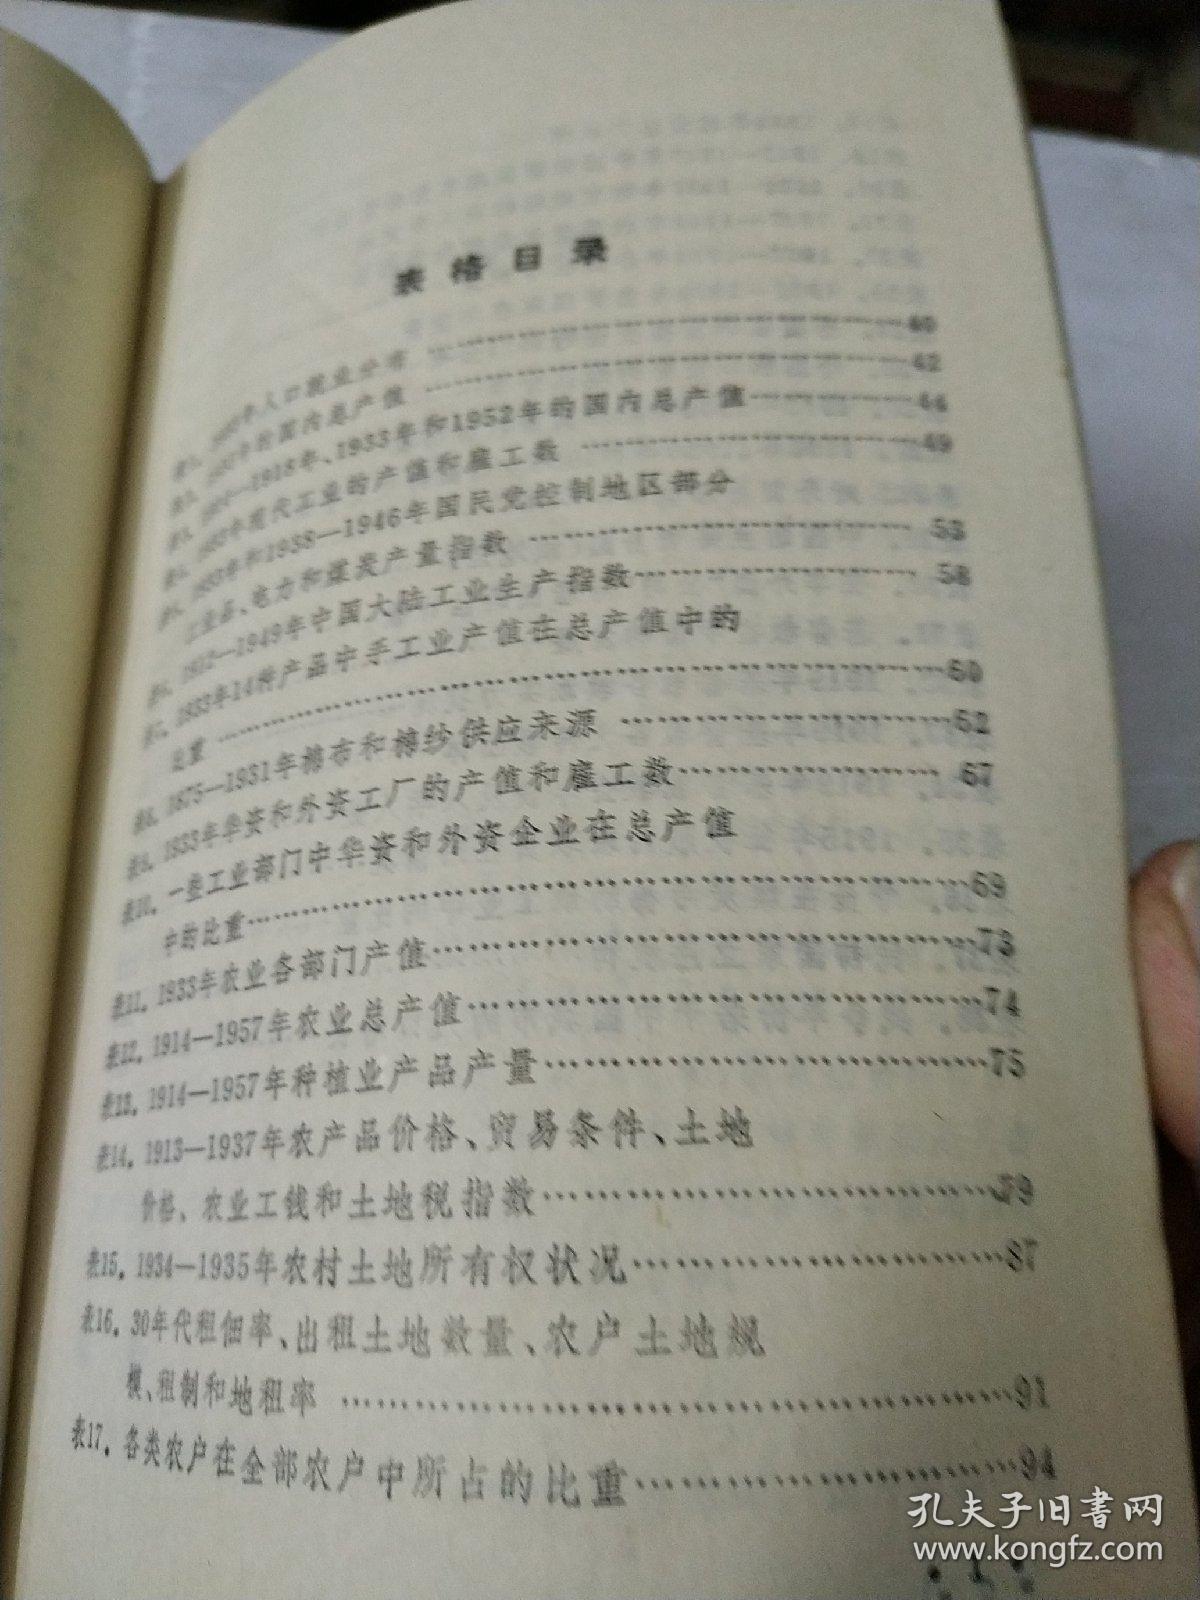 表格目录
表1. 1933年人口就业分布 ……………………………… 40
表2. 1933年的国内总产值 ……………………………… 42
表3. 1914—1918年、1933年和1952年的国内总产值………… 44
表4. 1933年现代工业的产值和雇工数 …………………… 49
表5. 1933年和1938—1946年国民党控制地区部分
工业品、电力和煤炭产量指数 …………………………… 53
表6. 1912—1949年中国大陆工业生产指数…………………… 58
表7. 1933年14种产品中手工业产值在总产值中的
比重 ……………………………………………………60
表8. 1875—1931年棉布和棉纱供应来源 …………………62
表9. 1933年华资和外资工厂的产值和雇工数……………… 67
表10. 一些工业部门中华资和外资企业在总产值
中的比重……………………………………………………69
表11. 1933年农业各部门产值………………………………73
表12. 1914—1957年农业总产值……………………………74
表13. 1914—1957年种植业产品产量………………………75
表14. 1913—1937年农产品价格、贸易条件、土地
价格、农业工钱和土地税指数……………………………79
表15. 1934—1935年农村土地所有权状况…………………87
表16. 30年代租佃率、出租土地数量、农户土地规
模、租制和地租率 …………………………………………91
表17. 各类农户在全部农户中所占的比重…………………94
· 1 ·
孔夫子旧书网
www.kongfz.com